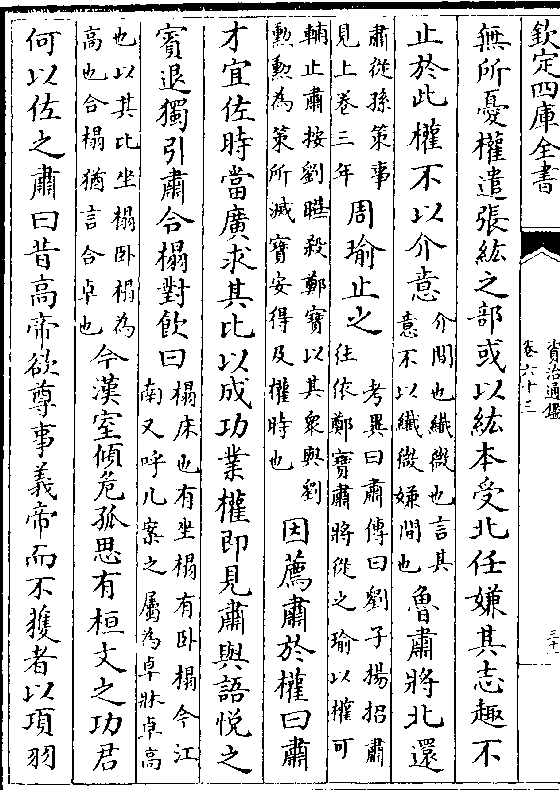 欽定四庫全書
資治通鑑
卷六十三
三十
無所憂權遣張紘之部或以紘本受北任嫌其志趣不
止於此權不以介意
介間也纖微也言其
意不以纖微嫌間也
魯肅將北還
肅從孫策事
見上卷三年
周瑜止之
考異曰肅傳曰劉子揚招肅
往依鄭寶肅將從之瑜以權可
輔止肅按劉曄殺鄭寶以其衆與劉
勲勲為策所滅寶安得及權時也
因薦肅於權曰肅
才宜佐時當廣求其比以成功業權即見肅與語悅之
賓退獨引肅合榻對飲曰
榻床也有坐榻有卧榻今江
南又呼几案之屬為卓牀卓高
也以其比坐榻卧榻為
高也合榻猶言合卓也
今漢室傾危孤思有桓文之功君
何以佐之肅曰昔高帝欲尊事義帝而不獲者以項羽